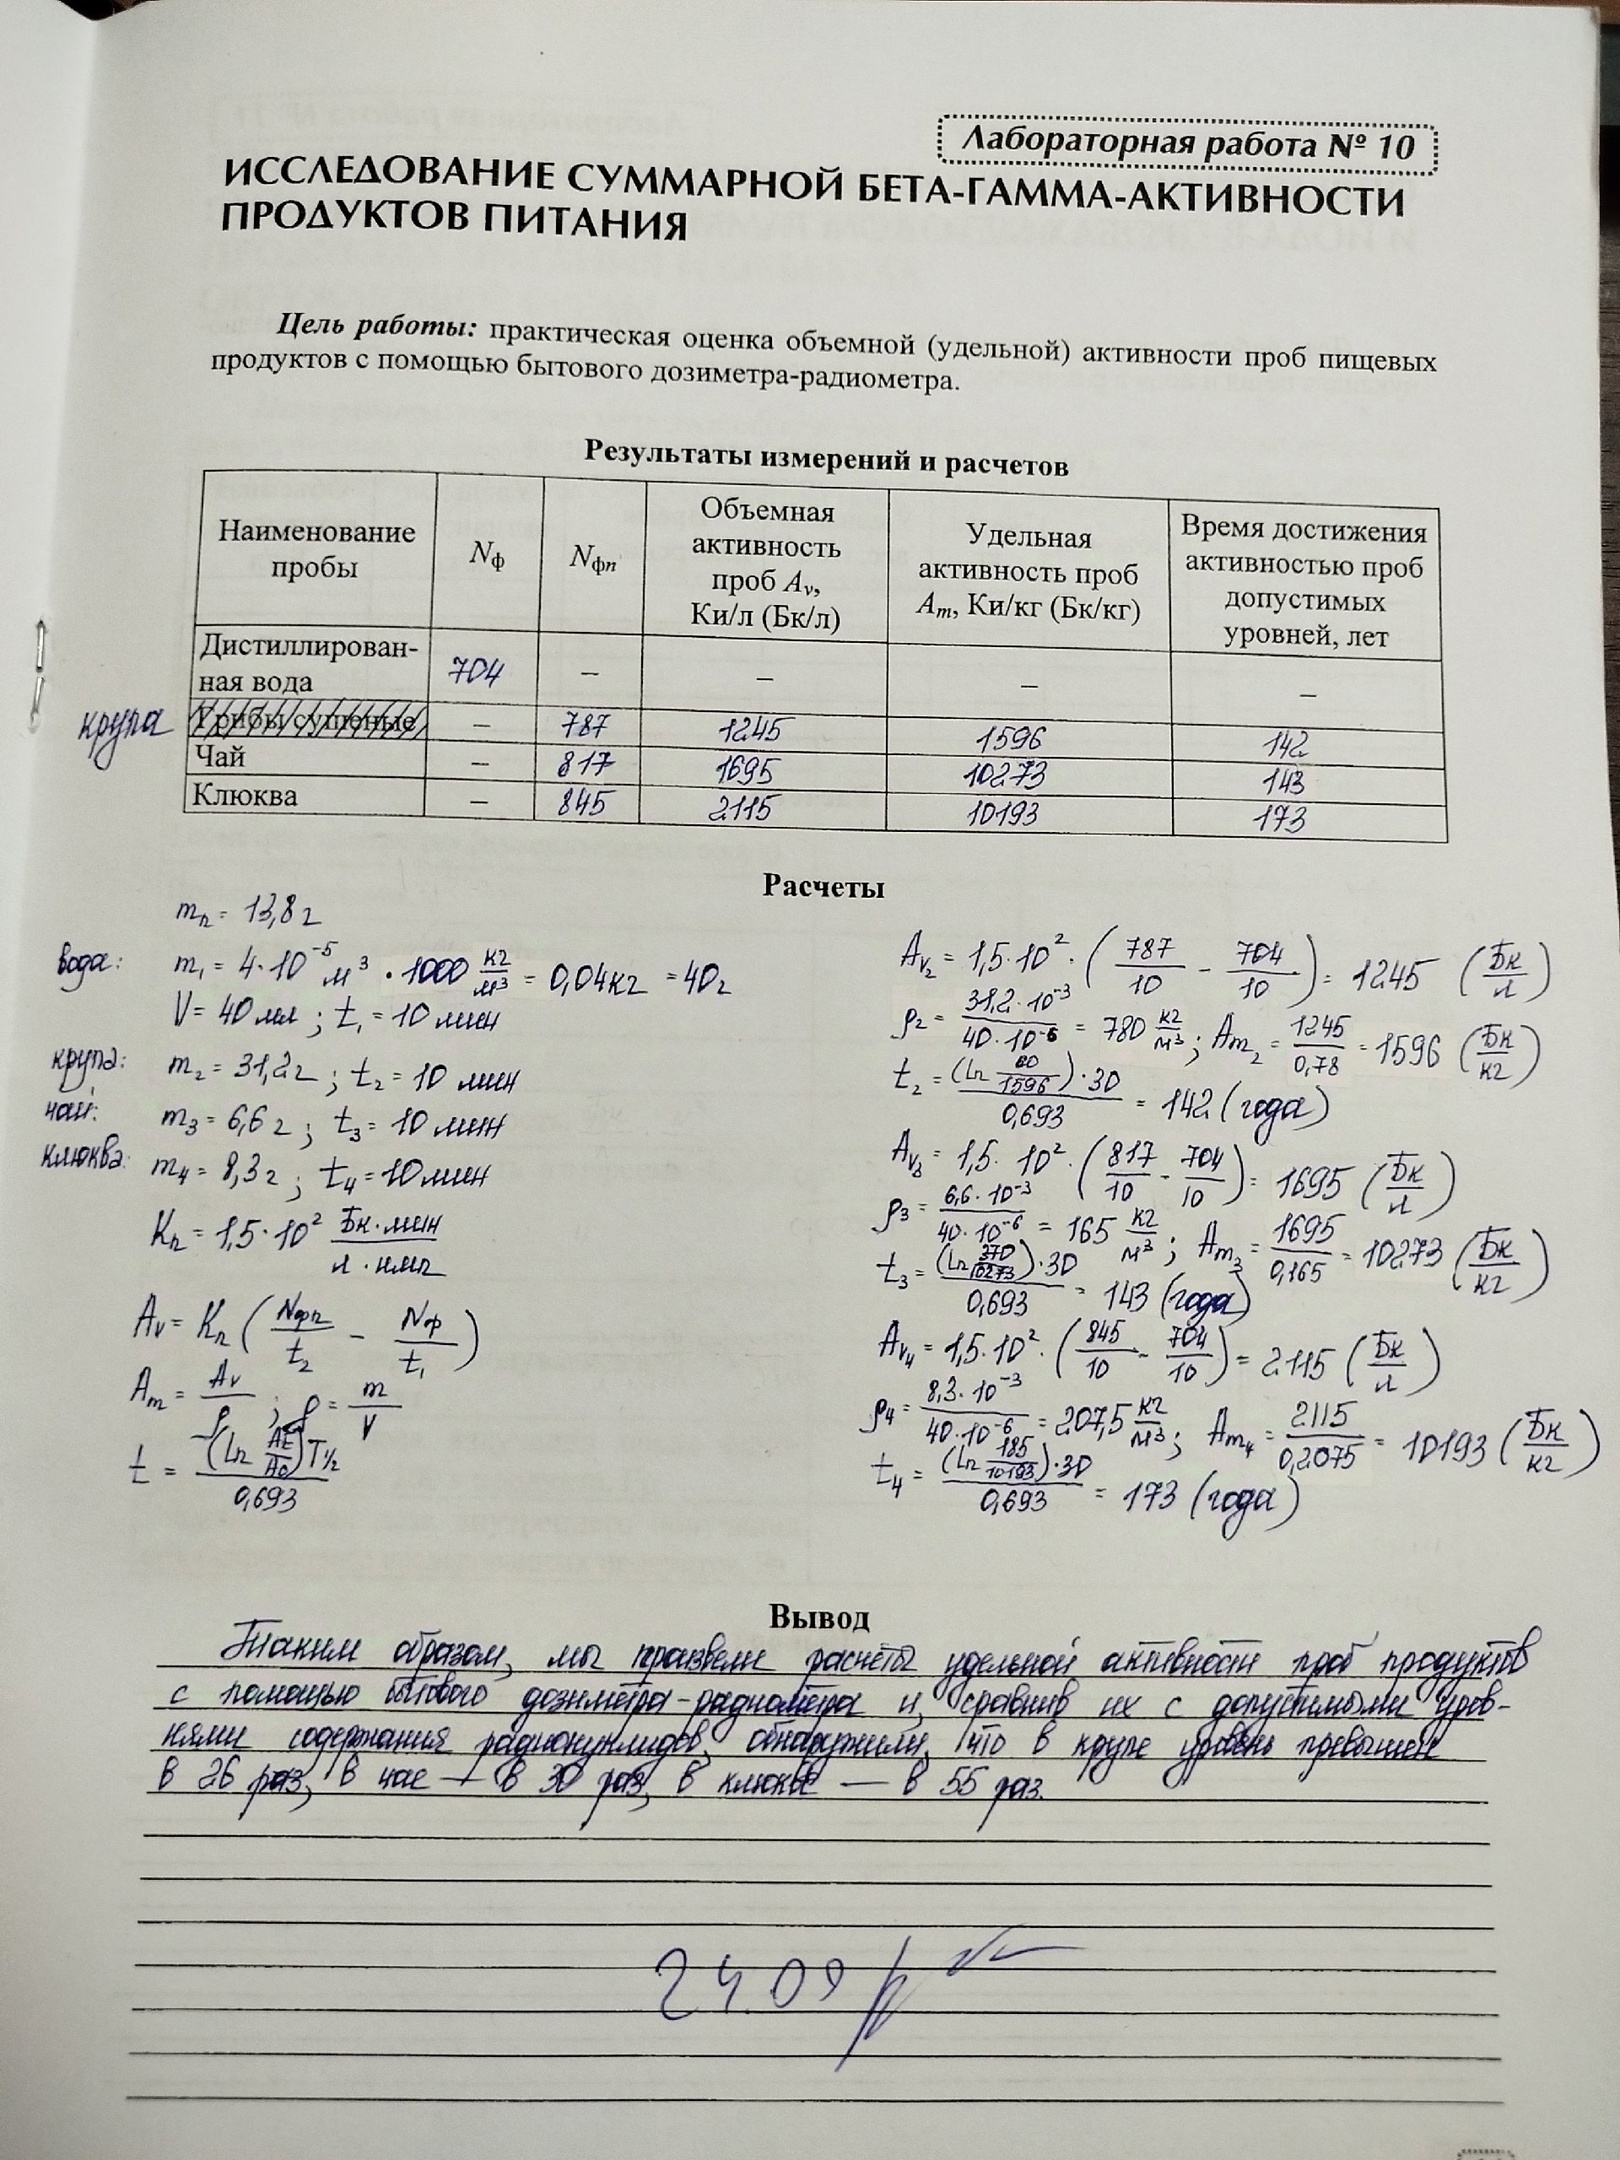 Лабораторная работа № 10
ИССЛЕДОВАНИЕ СУММАРНОЙ БЕТА-ГАММА-АКТИВНОСТИ
ПРОДУКТОВ ПИТАНИЯ
Цель работы: практическая оценка объемной (удельной) активности проб пищевых
продуктов с помощью бытового дозиметра-радиометра.
Результаты измерений и расчетов
Наименование пробы | Nф | Nфп | Объемная активность проб Av, Ки/л (Бк/л) | Удельная активность проб Am, Ки/кг (Бк/кг) | Время достижения активностью проб допустимых уровней, лет
Дистиллирован-ная вода | 704 | – | – | – | –
крупа Грибы сушеные | – | 787 | 1245 | 1596 | 142
Чай | – | 817 | 1695 | 10273 | 143
Клюква | – | 845 | 2115 | 10193 | 173
Расчеты
mп = 13,8 г
вода: m₁ = 4·10⁻⁵ м³ · 1000 кг/м³ = 0,04 кг = 40 г
V = 40 мл ; t₁ = 10 мин
крупа: m₂ = 31,2 г ; t₂ = 10 мин
чай: m₃ = 6,6 г ; t₃ = 10 мин
клюква: m₄ = 8,3 г ; t₄ = 10 мин
Kп = 1,5·10² Бк·мин/л·имп
Av = Kп (Nфп/t₂ – Nф/t₁)
Am = Av/ρ ; ρ = m/V
t = (Ln At/Ao) T½ / 0,693
Av₂ = 1,5·10² · (787/10 – 704/10) = 1245 (Бк/л)
ρ₂ = 31,2·10⁻³ / 40·10⁻⁶ = 780 кг/м³ ; Am₂ = 1245/0,78 = 1596 (Бк/кг)
t₂ = (Ln 60/1596)·30 / 0,693 = 142 (года)
Av₃ = 1,5·10² · (817/10 – 704/10) = 1695 (Бк/л)
ρ₃ = 6,6·10⁻³ / 40·10⁻⁶ = 165 кг/м³ ; Am₃ = 1695/0,165 = 10273 (Бк/кг)
t₃ = (Ln 370/10273)·30 / 0,693 = 143 (года)
Av₄ = 1,5·10² · (845/10 – 704/10) = 2115 (Бк/л)
ρ₄ = 8,3·10⁻³ / 40·10⁻⁶ = 207,5 кг/м³ ; Am₄ = 2115/0,2075 = 10193 (Бк/кг)
t₄ = (Ln 185/10193)·30 / 0,693 = 173 (года)
Вывод
Таким образом, мы произвели расчёты удельной активности проб продуктов
с помощью бытового дозиметра-радиометра и, сравнив их с допустимыми уров-
нями содержания радионуклидов, обнаружили, что в крупе уровень превышен
в 26 раз, в чае — в 30 раз, в клюкве — в 55 раз.
24.09